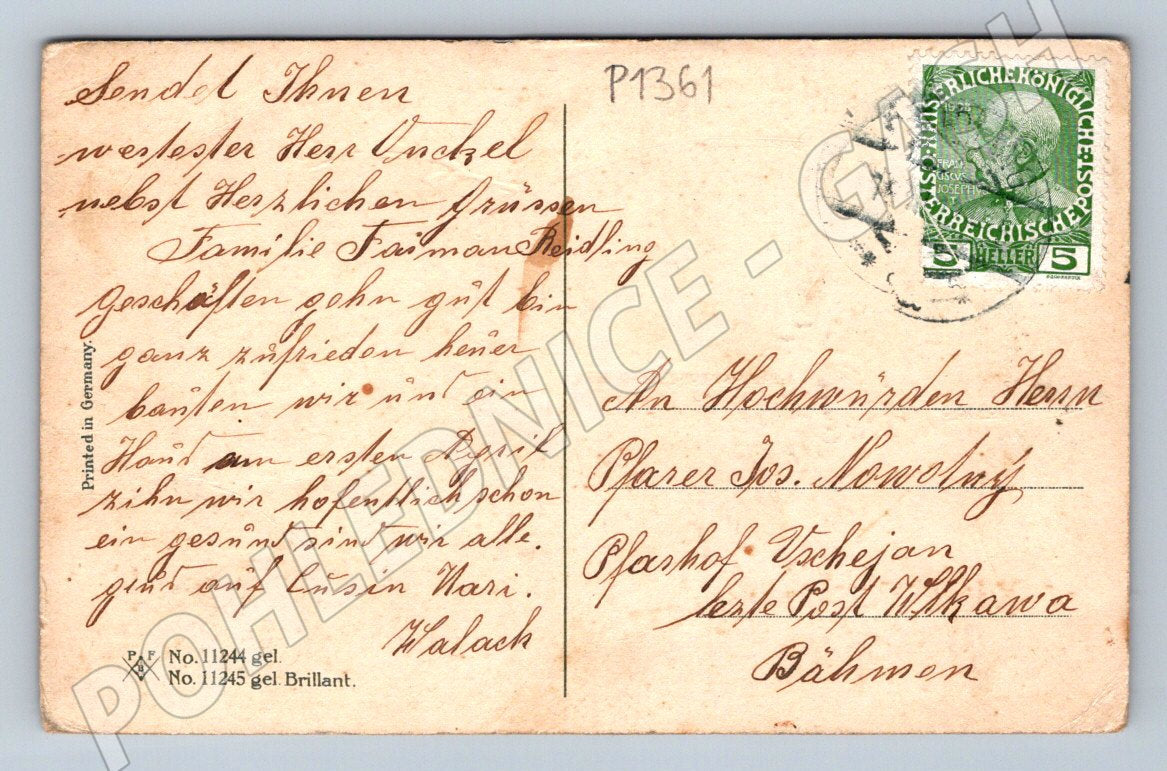 P1361
Sendet Ihnen
wertester Herr Onckel
nebst Herzlichen Grüssen
Familie Faiman Reidling
Geschäften gehn gut bin
ganz zufrieden heuer
bauten wir und ein
Haus am ersten April
zihn wir hofentlich schon
ein gesund sind wir alle.
Mari.
Walach
Printed in Germany.
P F B
No. 11244 gel.
No. 11245 gel. Brillant.
KAISERLICHE KÖNIGLICHE ÖSTERREICHISCHE POST
FRAN
CISCVS
JOSEPHVS
5 HELLER 5
An Hochwürden Herrn
Pfarer Jos. Nowotny
Pfarhof Vschejan
lezte Post Wlkawa
Böhmen
POHLEDNICE - GASCH